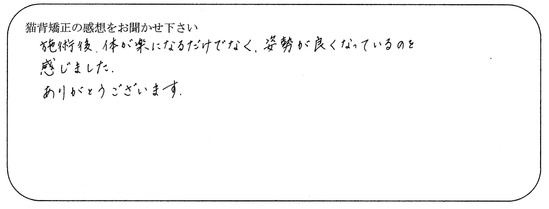 猫背矯正の感想をお聞かせ下さい
施術後、体が楽になるだけでなく、姿勢が良くなっているのを
感じました.
ありがとうございます.